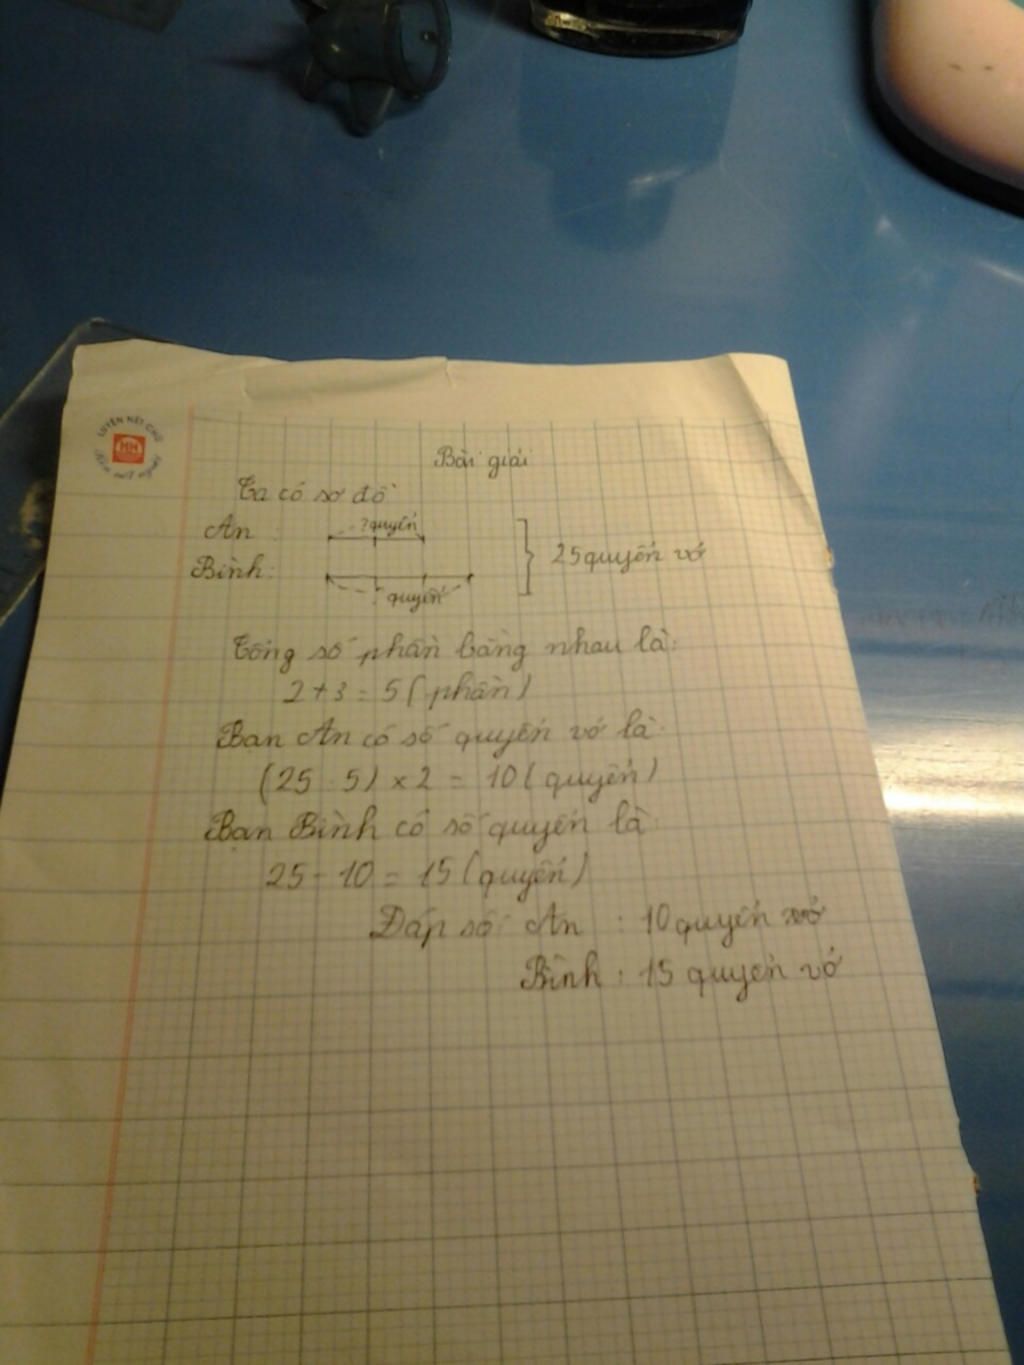 LUYỆN NÉT CHỮ
HH
Rèn nết người
Bài giải
Ta có sơ đồ
An :
? quyển
Bình:
25 quyển vở
? quyển
Tổng số phần bằng nhau là:
2 + 3 = 5 ( phần )
Bạn An có số quyển vở là:
(25 : 5) × 2 = 10 ( quyển )
Bạn Bình có số quyển là:
25 - 10 = 15 ( quyển )
Đáp số An : 10 quyển vở
Bình : 15 quyển vở